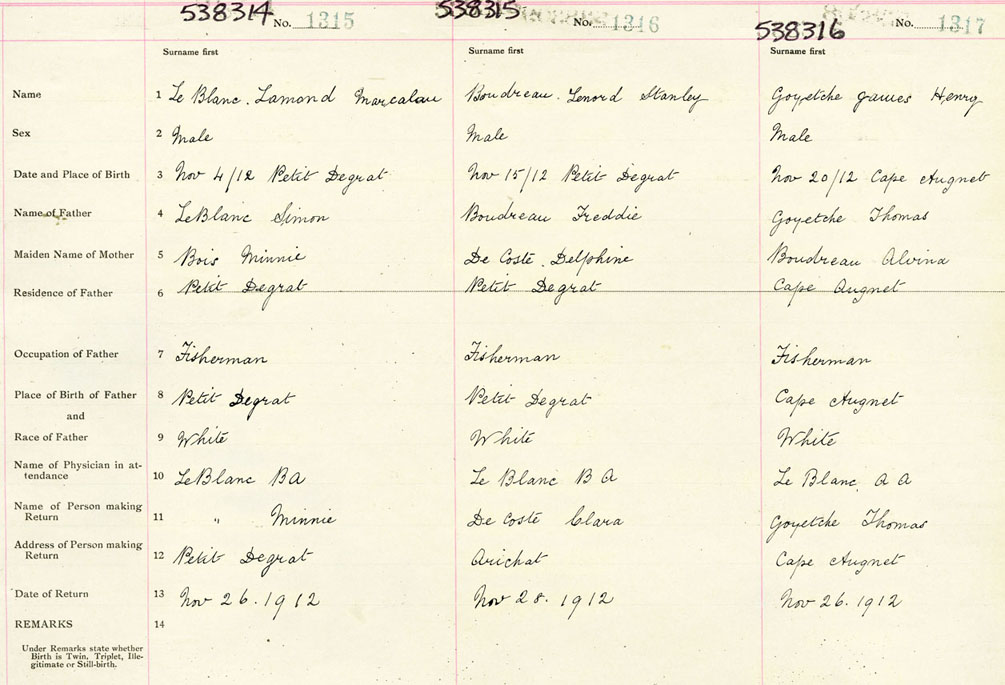 538314 No. 1315 538315 No. 1316 538316 No. 1317
Surname first Surname first Surname first
Name 1 Le Blanc. Lamond Marcalou Boudreau. Lenord Stanley Goyetche James Henry
Sex 2 Male Male Male
Date and Place of Birth 3 Nov 4/12 Petit Degrat Nov 15/12 Petit Degrat Nov 20/12 Cape Augnet
Name of Father 4 LeBlanc Simon Boudreau Freddie Goyetche Thomas
Maiden Name of Mother 5 Bois Minnie De Coste. Delphine Boudreau Alvina
Residence of Father 6 Petit Degrat Petit Degrat Cape Augnet
Occupation of Father 7 Fisherman Fisherman Fisherman
Place of Birth of Father 8 Petit Degrat Petit Degrat Cape Augnet
and
Race of Father 9 White White White
Name of Physician in at-
tendance 10 LeBlanc B A Le Blanc B A Le Blanc A A
Name of Person making
Return 11 " Minnie De Coste Clara Goyetche Thomas
Address of Person making
Return 12 Petit Degrat Arichat Cape Augnet
Date of Return 13 Nov 26. 1912 Nov 28. 1912 Nov 26. 1912
REMARKS 14
Under Remarks state whether
Birth is Twin, Triplet, Ille-
gitimate or Still-birth.